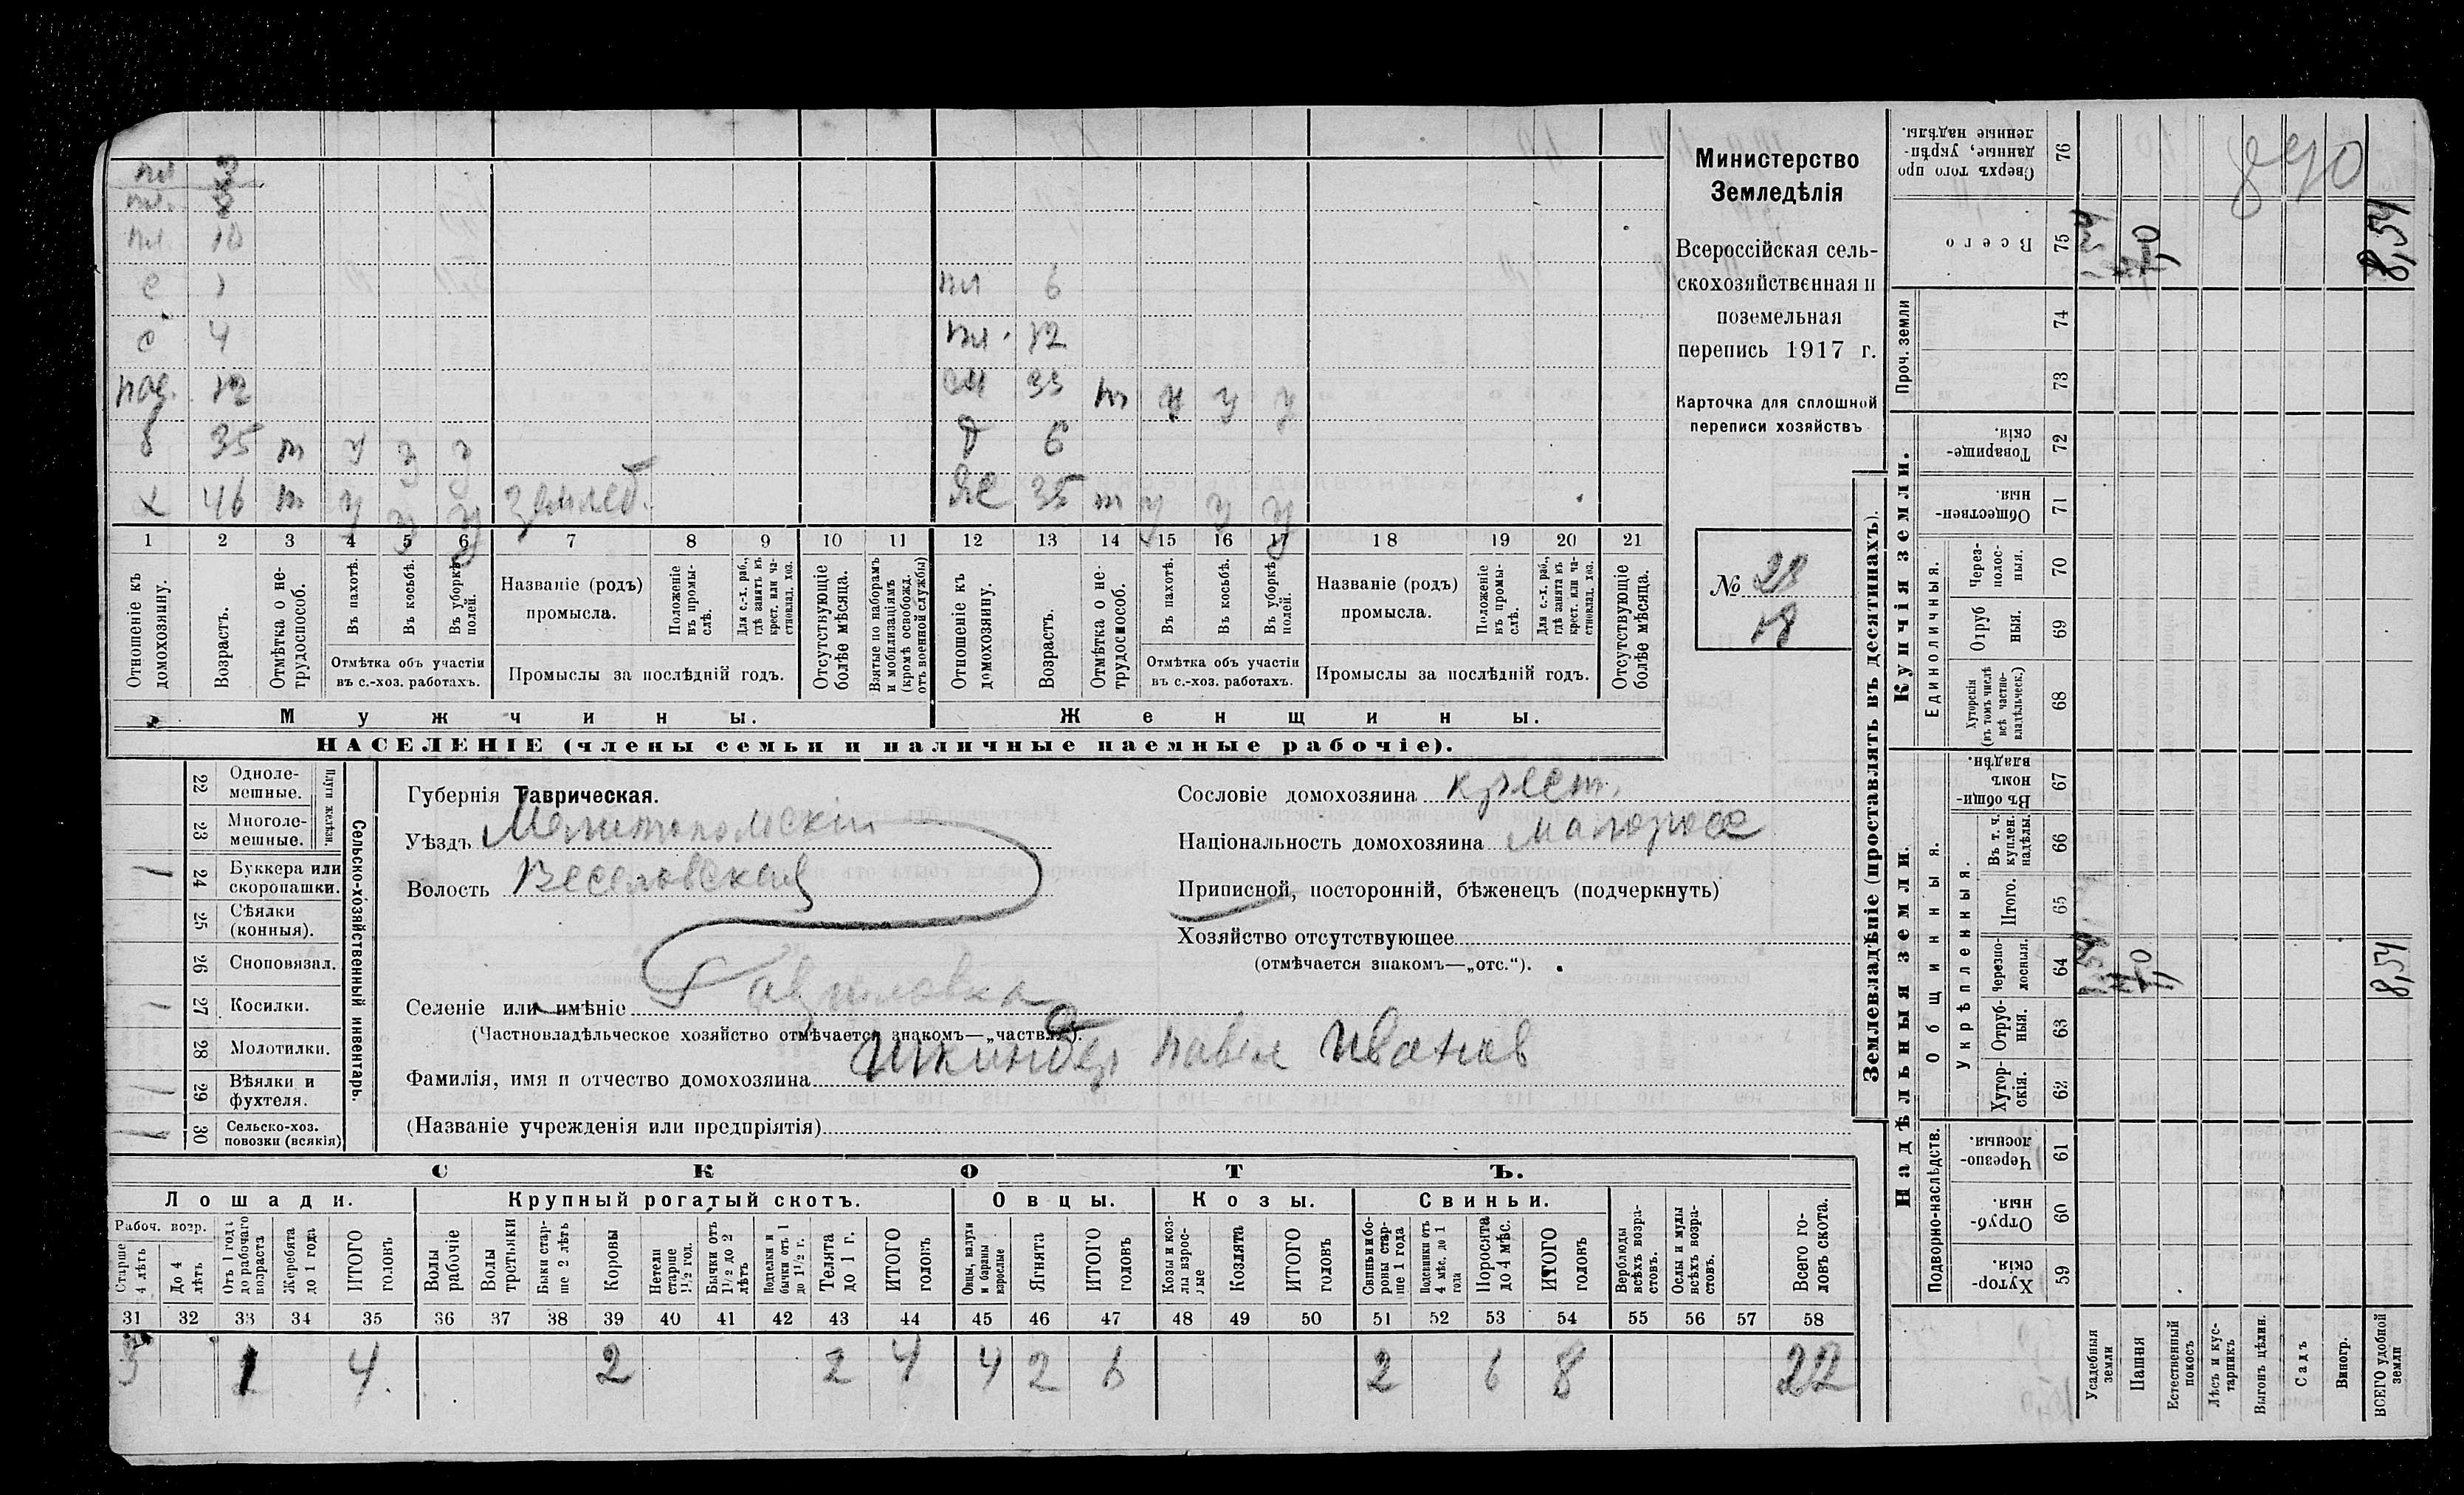 пл 3
пл. 8
пл. 10
с 1
с 4
пас. 12
б 35 т у у у
х 46 т у у у землед.
пл 6
пл. 12
33 т у у у
д 6
же 35 т у у у
1 2 3 4 5 6 7 8 9 10 11 12 13 14 15 16 17 18 19 20 21
Отношеніе къ домохозяину.
Возрастъ.
Отмѣтка о не-трудоспособ.
Въ пахотѣ.
Въ косьбѣ.
Въ уборкѣ полей.
Отмѣтка объ участіи
въ с.-хоз. работахъ.
Названіе (родъ)
промысла.
Положеніе въ промы-слѣ.
Для с.-х. раб., гдѣ занятъ въ крест. или ча-стновлад. хоз.
Промыслы за послѣдній годъ.
Отсутствующіе болѣе мѣсяца.
Взятые по наборамъ и мобилизаціямъ (кромѣ освобожд. отъ военной службы)
Отношеніе къ домохозяину.
Возрастъ.
Отмѣтка о не-трудоспособ.
Въ пахотѣ.
Въ косьбѣ.
Въ уборкѣ полей.
Отмѣтка объ участіи
въ с.-хоз. работахъ.
Названіе (родъ)
промысла.
Положеніе въ промы-слѣ.
Для с.-х. раб., гдѣ занята въ крест. или ча-стновлад. хоз.
Промыслы за послѣдній годъ.
Отсутствующіе болѣе мѣсяца.
Мужчины.
Женщины.
НАСЕЛЕНІЕ (члены семьи и наличные наемные рабочіе).
Министерство
Земледѣлія
Всероссійская сель-
скохозяйственная и
поземельная
перепись 1917 г.
Карточка для сплошной
переписи хозяйствъ
№ 28
18
Сельско-хозяйственный инвентарь.
Плуги желѣзн.
22 Одноле-мешные.
23 Многоле-мешные.
24 Буккера или скоропашки.
25 Сѣялки (конныя).
26 Сноповязал.
27 Косилки.
28 Молотилки.
29 Вѣялки и фухтеля.
30 Сельско-хоз. повозки (всякія)
Губернія Таврическая.
Уѣздъ Мелитопольскій
Волость Веселовская
Селеніе или имѣніе Гавриловка
(Частновладѣльческое хозяйство отмѣчается знакомъ—„частвл.“).
Фамилія, имя и отчество домохозяина Шкиндер Павел Иванов
(Названіе учрежденія или предпріятія)
Сословіе домохозяина крест.
Національность домохозяина малоросс
Приписной, посторонній, бѣженецъ (подчеркнуть)
Хозяйство отсутствующее
(отмѣчается знакомъ—„отс.“).
СКОТЪ.
Лошади.
Крупный рогатый скотъ.
Овцы.
Козы.
Свиньи.
Рабоч. возр.
Старше 4 лѣтъ
До 4 лѣтъ
Отъ 1 года до рабочаго возраста
Жеребята до 1 года
ИТОГО головъ
Волы рабочіе
Волы третьяки
Быки стар-ше 2 лѣтъ
Коровы
Нетели старше 1½ год.
Бычки отъ 1½ до 2 лѣтъ
Подтелки и бычки отъ 1 до 1½ г.
Телята до 1 г.
ИТОГО головъ
Овцы, валухи и бараны взрослые
Ягнята
ИТОГО головъ
Козы и коз-лы взрос-лые
Козлята
ИТОГО головъ
Свиньи и бо-ровы стар-ше 1 года
Подсвинки отъ 4 мѣс. до 1 года
Поросята до 4 мѣс.
ИТОГО головъ
Верблюды всѣхъ возра-стовъ.
Ослы и мулы всѣхъ возра-стовъ.
Всего го-ловъ скота.
31 32 33 34 35 36 37 38 39 40 41 42 43 44 45 46 47 48 49 50 51 52 53 54 55 56 57 58
3 1 4 2 2 4 4 2 6 2 6 8 22
Землевладѣніе (проставлять въ десятинахъ).
Купчія земли.
Надѣльныя земли.
Сверхъ того про данные, укрѣп-ленные надѣлы. 76
Всего 75
Проч. земли
74
73
Товарище-скія. 72
Обществен-ныя. 71
Единоличныя.
Через-полос-ныя. 70
Отруб ныя. 69
Хуторскія (въ томъ числѣ всѣ частно-владѣльческ.) 68
Общинныя.
Въ общи-номъ владѣн. 67
Укрѣпленныя.
Въ т. ч. куплен. надѣлы. 66
Итого. 65
Черезпо-лосныя. 64
Отруб-ныя. 63
Хутор-скія. 62
Подворно-наслѣдств.
Черезпо-лосныя. 61
Отруб-ныя. 60
Хутор-скія. 59
Усадебныя земли
Пашня
Естественный покосъ
Лѣсъ и кус-тарникъ
Выгонъ цѣлин.
Садъ
Виногр.
ВСЕГО удобной земли
890
7,0
8,54
7,0
8,54